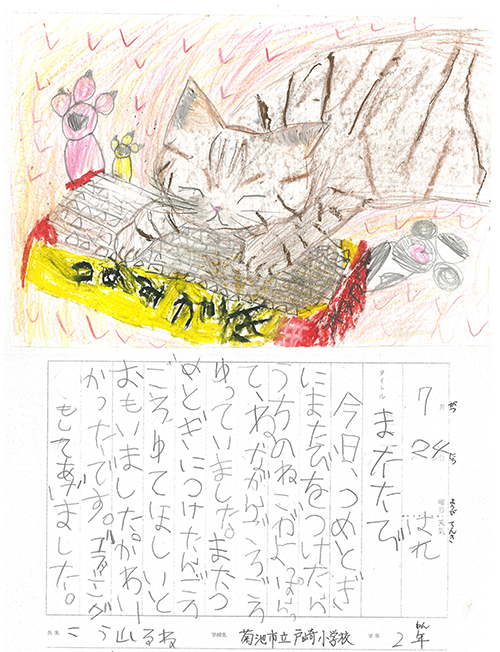 7月24日
がつ にち
曜日 天気
ようび てんき
はれ
タイトル
またたび
今日、つめとぎ
にまたびをつけたら
うちのねこがよっぱらっ
て、ねながらごろごろ
ゆっていました。またつ
めとぎにつけたらごろ
ごろゆてほしいと
おもいました。かわいー
かったです。
もしてあげました。
氏名 こう山るね
学校名 菊池市立戸崎小学校
学年 2年
ねん